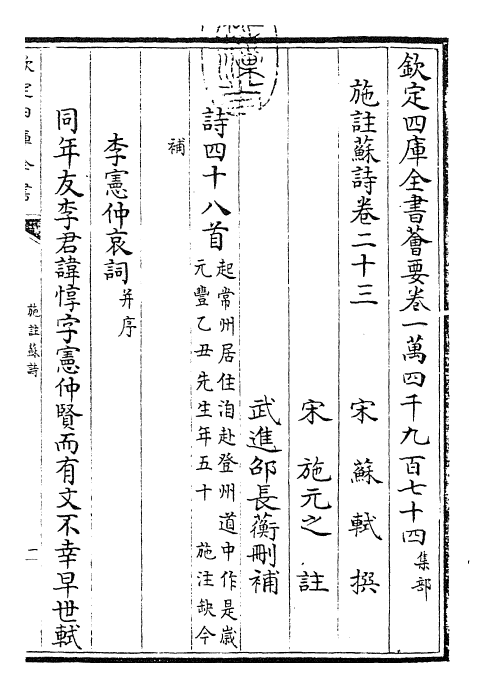 欽定四庫全書薈要卷一萬四千九百七十四 集部
施註蘇詩卷二十三
宋 蘇軾 撰
宋 施元之 註
武進邵長蘅刪補
詩四十八首 起常州居住洎赴登州道中作是歲
元豐乙丑先生年五十 施注缺今
補
李憲仲哀詞 并序
同年友李君諱惇字憲仲賢而有文不幸早世軾
施註蘇詩
一